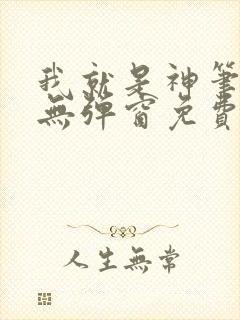 我就是神筆
無彈窗免費
人生無常